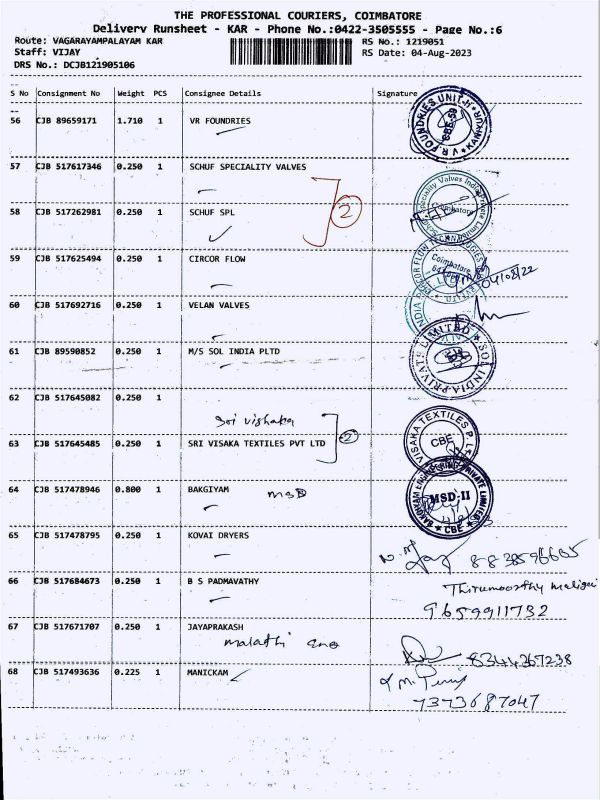 THE PROFESSIONAL COURIERS, COIMBATORE
Delivery Runsheet - KAR - Phone No.:0422-3505555 - Page No.:6
Route: VAGARAYAMPALAYAM KAR RS No.: 1219051
Staff: VIJAY RS Date: 04-Aug-2023
DRS No.: DCJB121905106
S No Consignment No Weight PCS Consignee Details Signature
56 CJB 89659171 1.710 1 VR FOUNDRIES
V R FOUNDRIES UNIT-II CBE-59
57 CJB 517617346 0.250 1 SCHUF SPECIALITY VALVES
2
58 CJB 517262981 0.250 1 SCHUF SPL
Speciality Valves India Private Limited Coimbatore
59 CJB 517625494 0.250 1 CIRCOR FLOW
Coimbatore
04/08/22
60 CJB 517692716 0.250 1 VELAN VALVES
61 CJB 89590852 0.250 1 M/S SOL INDIA PLTD
SOL INDIA PRIVATE LIMITED
62 CJB 517645082 0.250 1
Sri Vishaka
63 CJB 517645485 0.250 1 SRI VISAKA TEXTILES PVT LTD
2
VISAKA TEXTILES P. L CBE
64 CJB 517478946 0.800 1 BAKGIYAM
MSD
BAKGIYAM ENGINEERING PRIVATE LIMITED MSD-II CBE
65 CJB 517478795 0.250 1 KOVAI DRYERS
66 CJB 517684673 0.250 1 B S PADMAVATHY
Thirumoorthy Maligai
9659911732
67 CJB 517671707 0.250 1 JAYAPRAKASH
malathi
8344367238
68 CJB 517493636 0.225 1 MANICKAM
7373687047